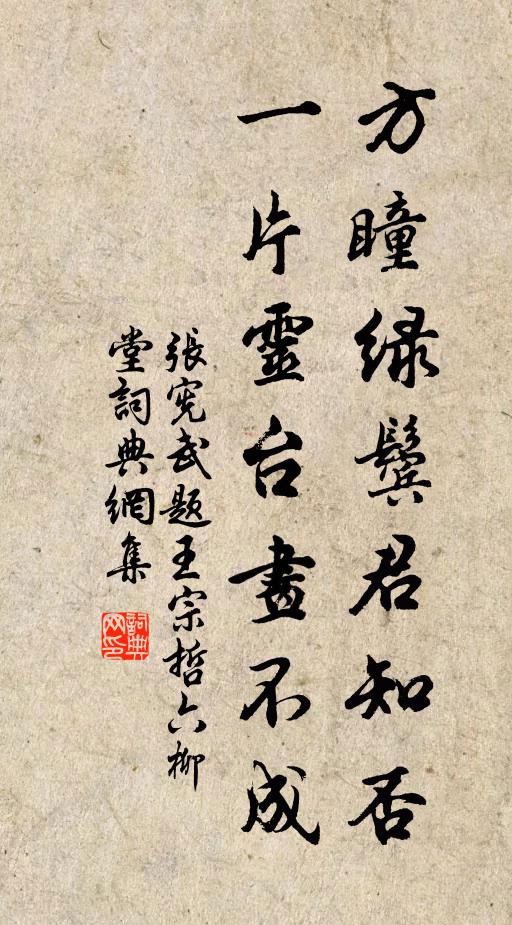 方瞳绿鬓君知否
一片靈台畫不成
張宪武题王宗哲六柳
堂詞典網集
詞典
网印